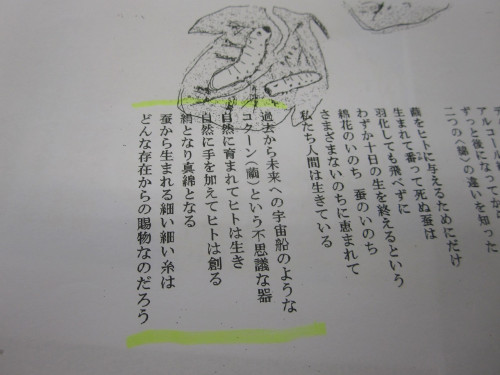 アルコール
ずっと後になってか
二つの〈〉の違いを知った
繭をヒトに与えるためにだけ
生まれて番って死ぬ蚕は
羽化しても飛べずに
わずか十日の生を終えるという
綿花のいのち 蚕のいのち
さまざまないのちに恵まれて
私たち人間は生きている
過去から未来への宇宙船のような
コクーン(繭)という不思議な器
自然に育まれてヒトは生き
自然に手を加えてヒトは創る
絹となり真綿となる
蚕から生まれる細い細い糸は
どんな存在からの賜物なのだろう